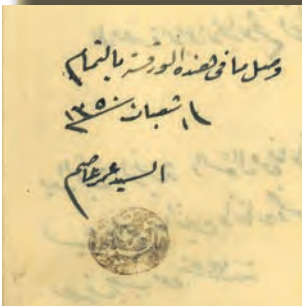 وصل ما في هذه الورقة بالتمام
١١ شعبان ١٣٥٠
السيد عمر عاصم